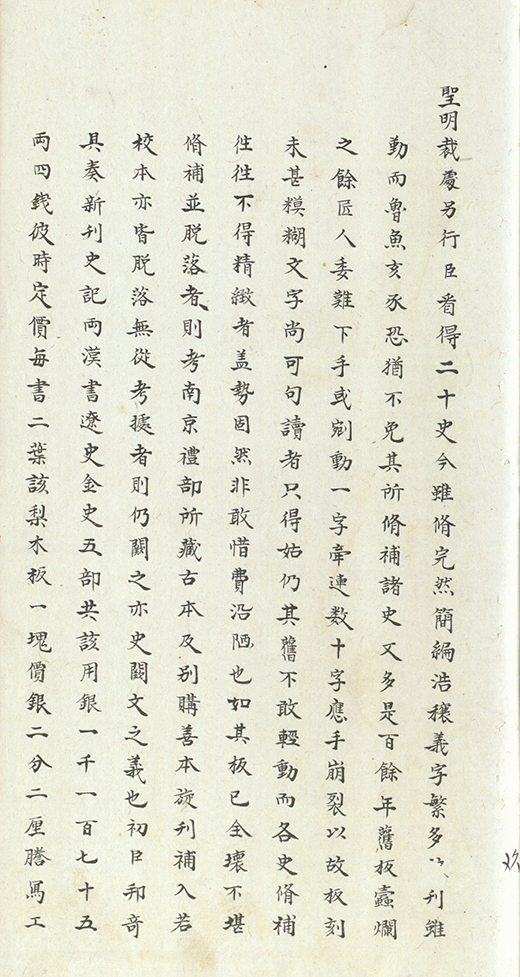 聖明裁處另行臣看得二十史今雖脩完然簡編浩穰義字繁多以刋雖
勤而魯魚亥豕恐猶不免其所脩補諸史又多是百餘年舊板蠹爛
之餘匠人委難下手或剜動一字牽連数十字應手崩裂以故板刻
未甚糢糊文字尚可句讀者只得姑仍其舊不敢輕動而各史脩補
徃徃不得精緻者盖勢固然非敢惜費沿陋也如其板已全壞不堪
脩補並脫落者則考南京禮部所藏古本及別購善本旋刋補入若
校本亦皆脫落無從考據者則仍闕之亦史闕文之義也初臣邦竒
具奏新刋史記両漢書遼史金史五部共該用銀一千一百七十五
両四錢彼時定價每書二葉該梨木板一塊價銀二分二厘謄寫工